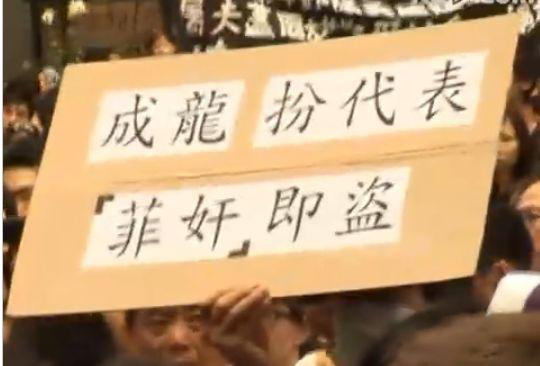 成龍 扮代表
『菲奸』即盗